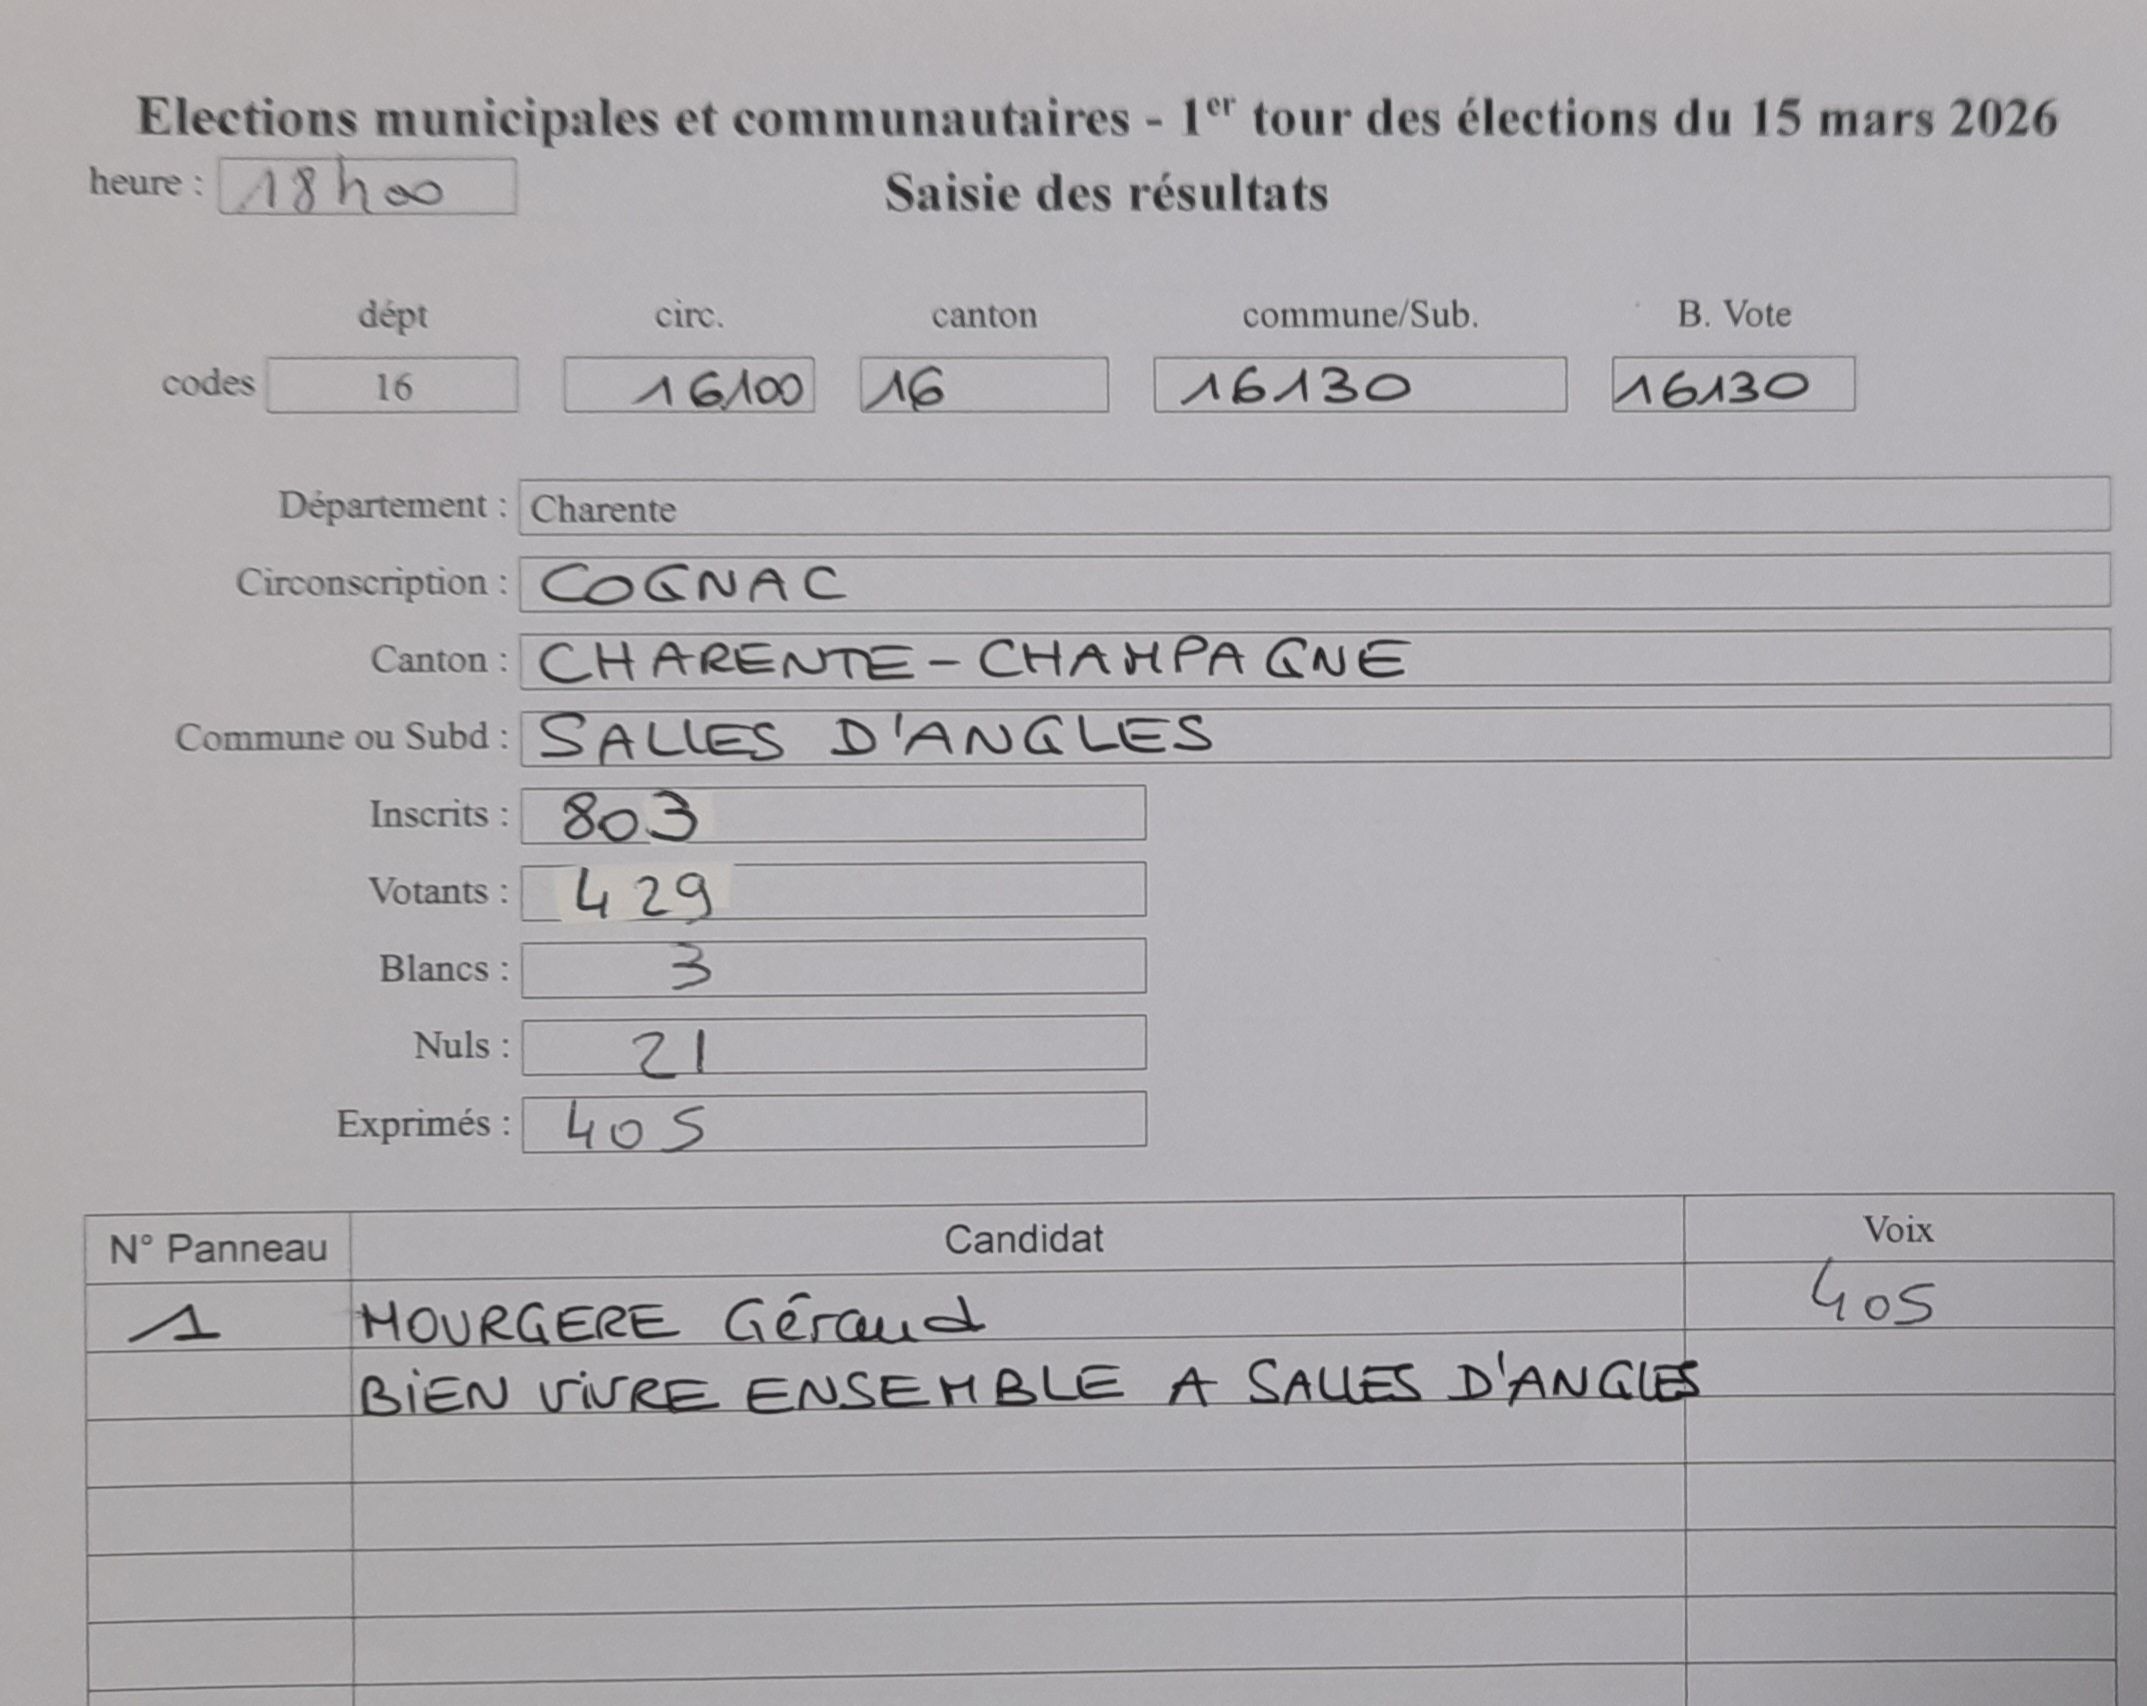 Elections municipales et communautaires - 1er tour des élections du 15 mars 2026
heure : 18h00
Saisie des résultats
dépt circ. canton commune/Sub. B. Vote
codes 16 16100 16 16130 16130
Département : Charente
Circonscription : COGNAC
Canton : CHARENTE-CHAMPAGNE
Commune ou Subd : SALLES D'ANGLES
Inscrits : 803
Votants : 429
Blancs : 3
Nuls : 21
Exprimés : 405
N° Panneau Candidat Voix
1 MOURGERE Géraud 405
BIEN VIVRE ENSEMBLE A SALLES D'ANGLES